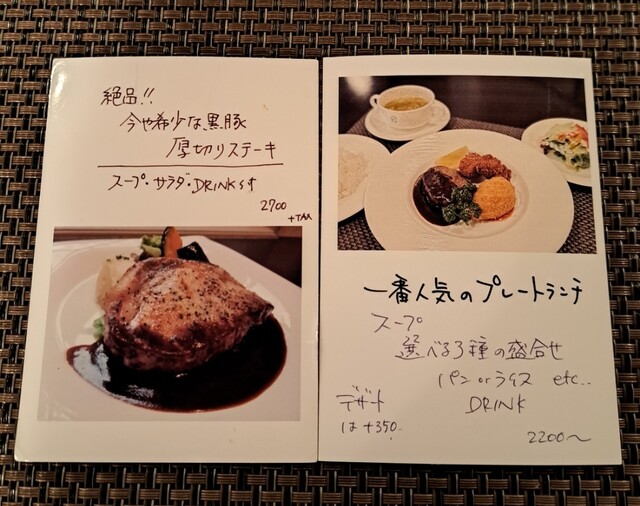 絶品!!
今や希少な黒豚
厚切りステーキ
スープ・サラダ・DRINK付
2700
+TAX
一番人気のプレートランチ
スープ
選べる3種の盛合せ
パン or ライス etc..
DRINK
デザート
は +350.
2200〜